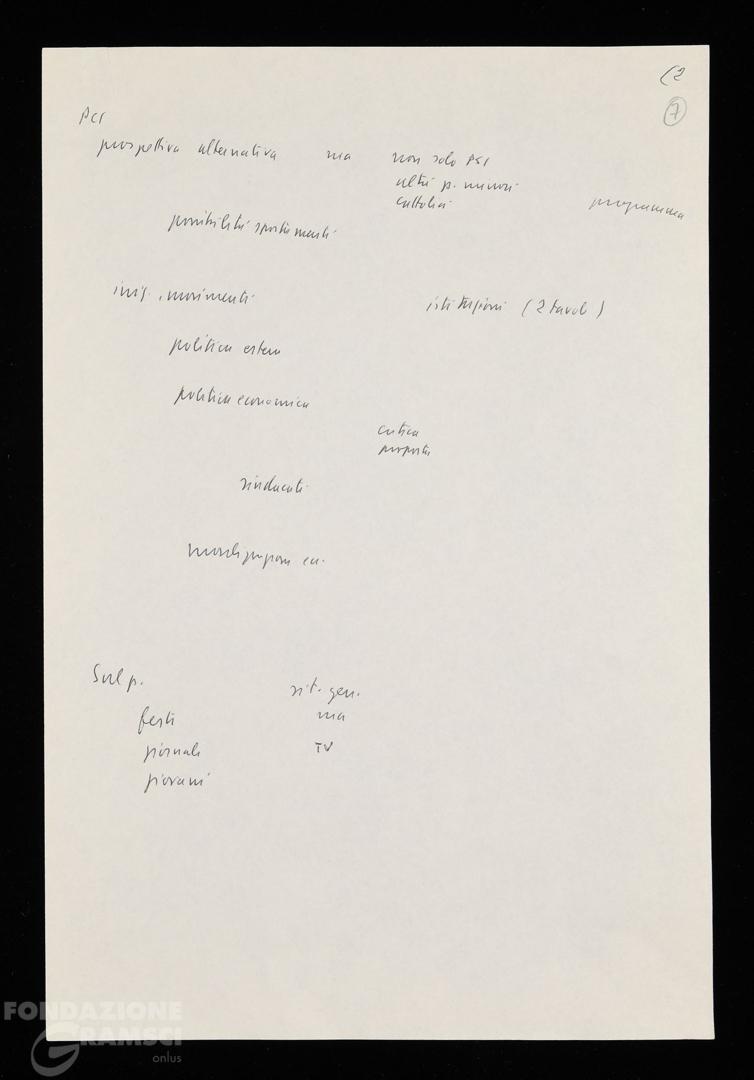 (2
7
PCI
prospettiva alternativa ma non solo PSI
altri p. minori
cattolici programma
possibilità spostamenti
iniz. movimenti istituzioni (2 tavoli)
politica estera
politica economica
critica
proposta
sindacati
Sul p. sit. gen.
feste ma
giornale TV
giovani
FONDAZIONE
GRAMSCI
onlus